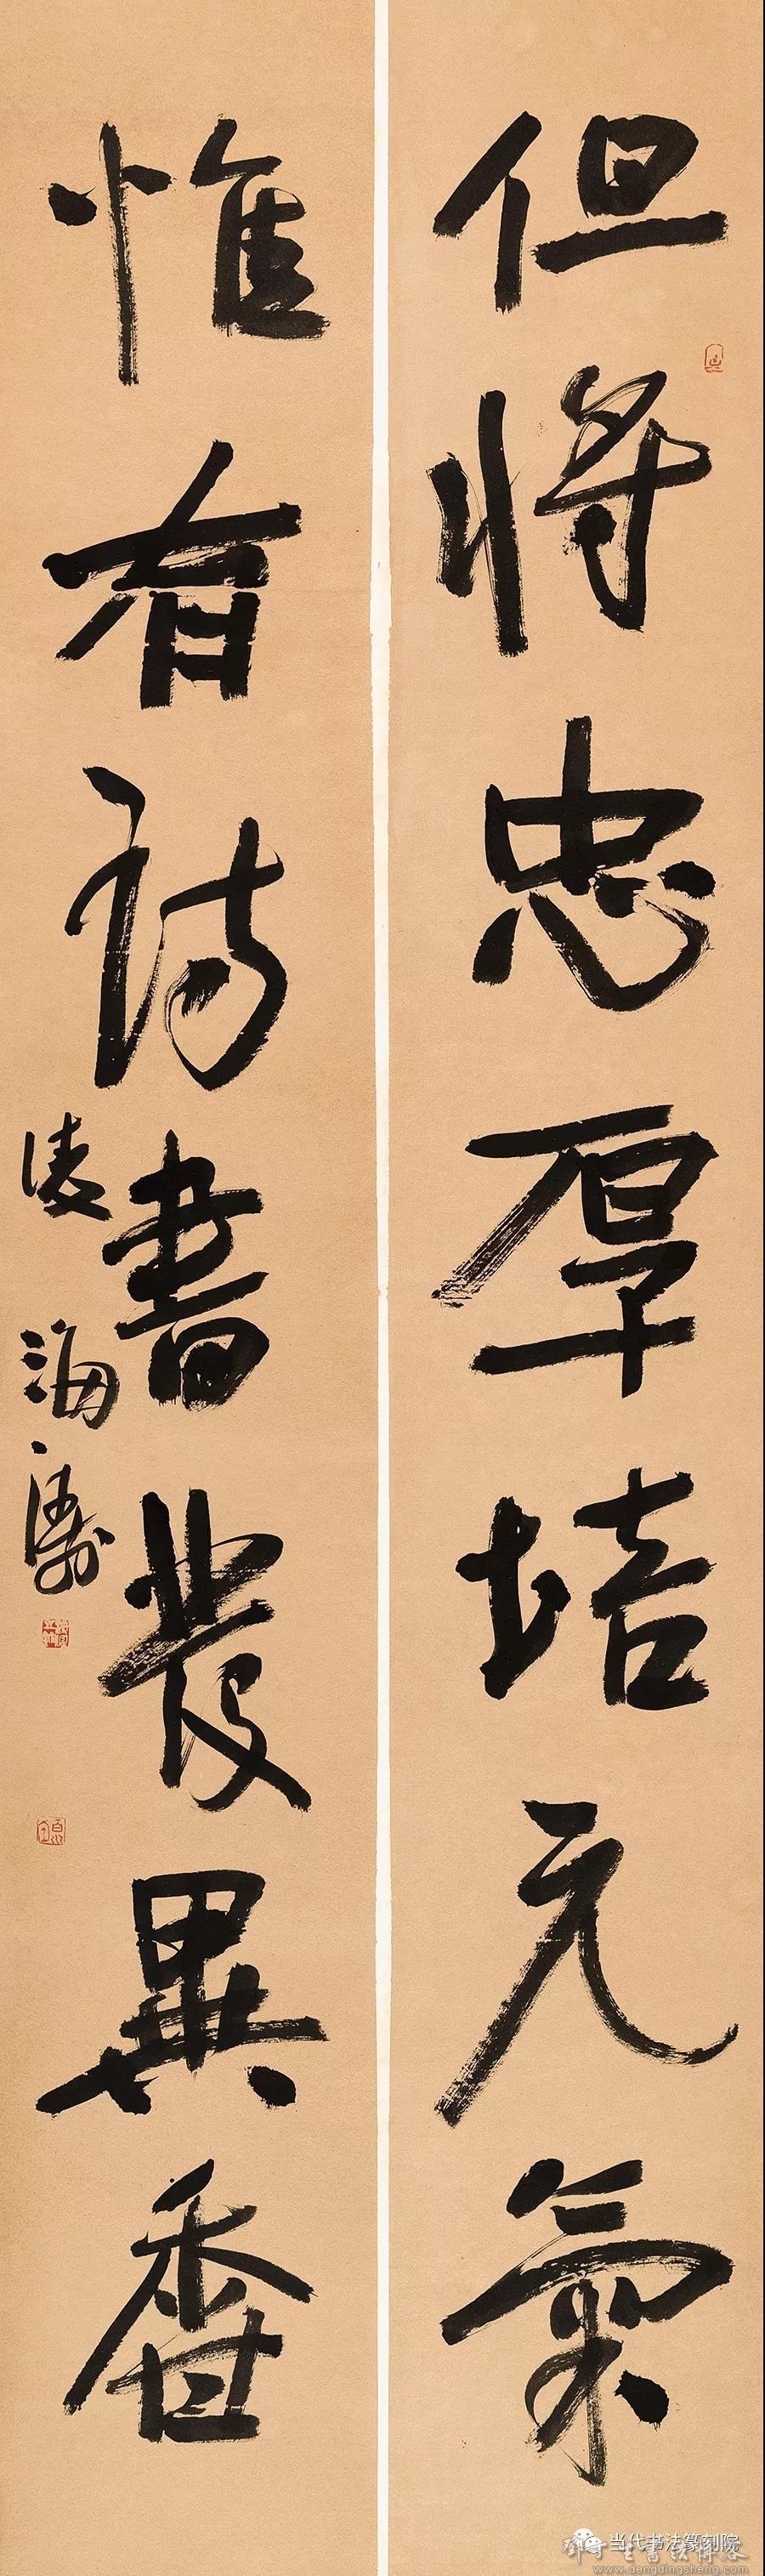 但将忠厚培元氣
惟有诗書發異香
凌海涛
当代书法篆刻院
www.dengdingsheng.com